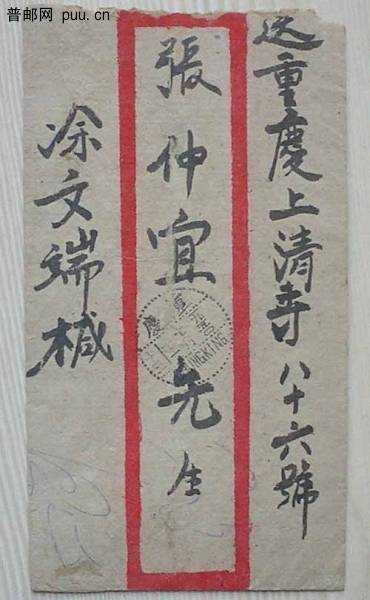 普邮网 puu.cn
送重慶上清寺八十六號
張仲喧先生
涂文端槭
重慶
CHUNGKING